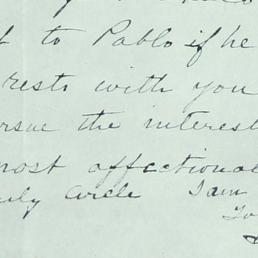 to Pablo if he
rests with you
rsue the interest
most affectional
ily circle I am